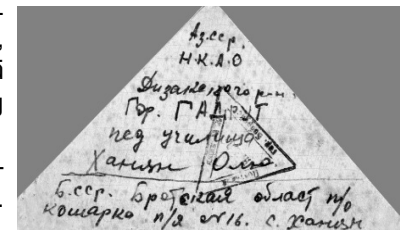 Аз.сср.
Н.К.А.О
Дизакского р-н.
Гор. ГАДРУТ
пед училища
Ханян Олга.
Б.сср. Бретская област п/о
кошарко п/я №16. с. Ханян